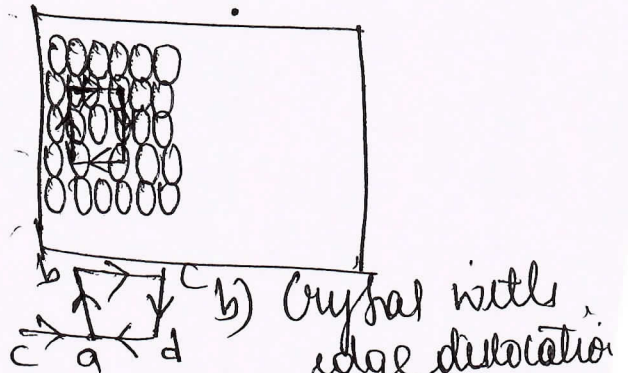 b c b) Crystal with
c a d edge dislocation